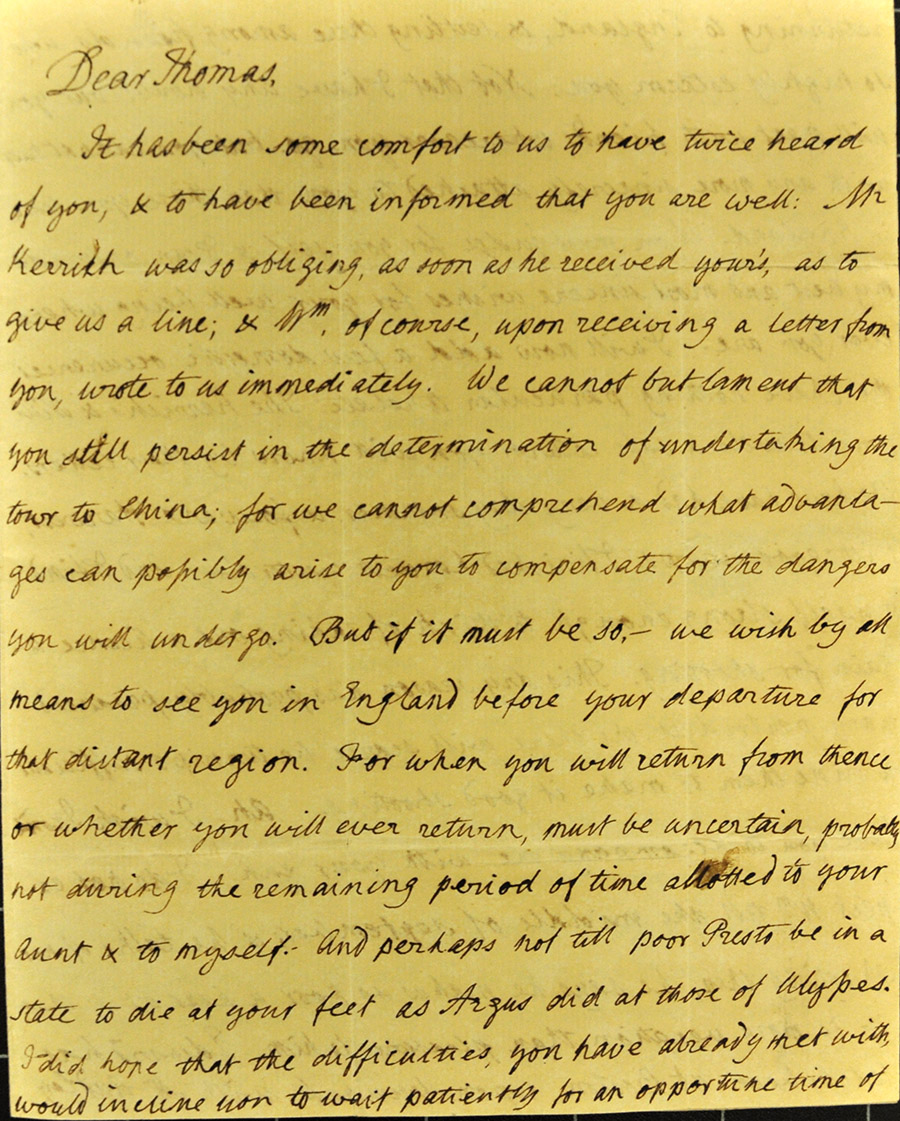 Dear Thomas,
It has been some comfort to us to have twice heard
of you, & to have been informed that you are well: Mr
Kerrich was so obliging, as soon as he received your's, as to
give us a line; & Wm. of course, upon receiving a letter from
you, wrote to us immediately. We cannot but lament that
you still persist in the determination of undertaking the
tour to China; for we cannot comprehend what advanta-
ges can poſsibly arise to you to compensate for the dangers
you will undergo. But if it must be so,- we wish by all
means to see you in England before your departure for
that distant region. For when you will return from thence
or whether you will ever return, must be uncertain, probably
not during the remaining period of time allotted to your
Aunt & to myself:- And perhaps not till poor Presto be in a
state to die at your feet as Argus did at those of Ulyſses.
I did hope that the difficulties, you have already met with,
would incline you to wait patiently for an opportune time of